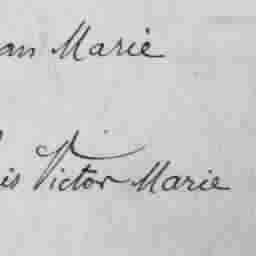 an Marie
is Victor Marie